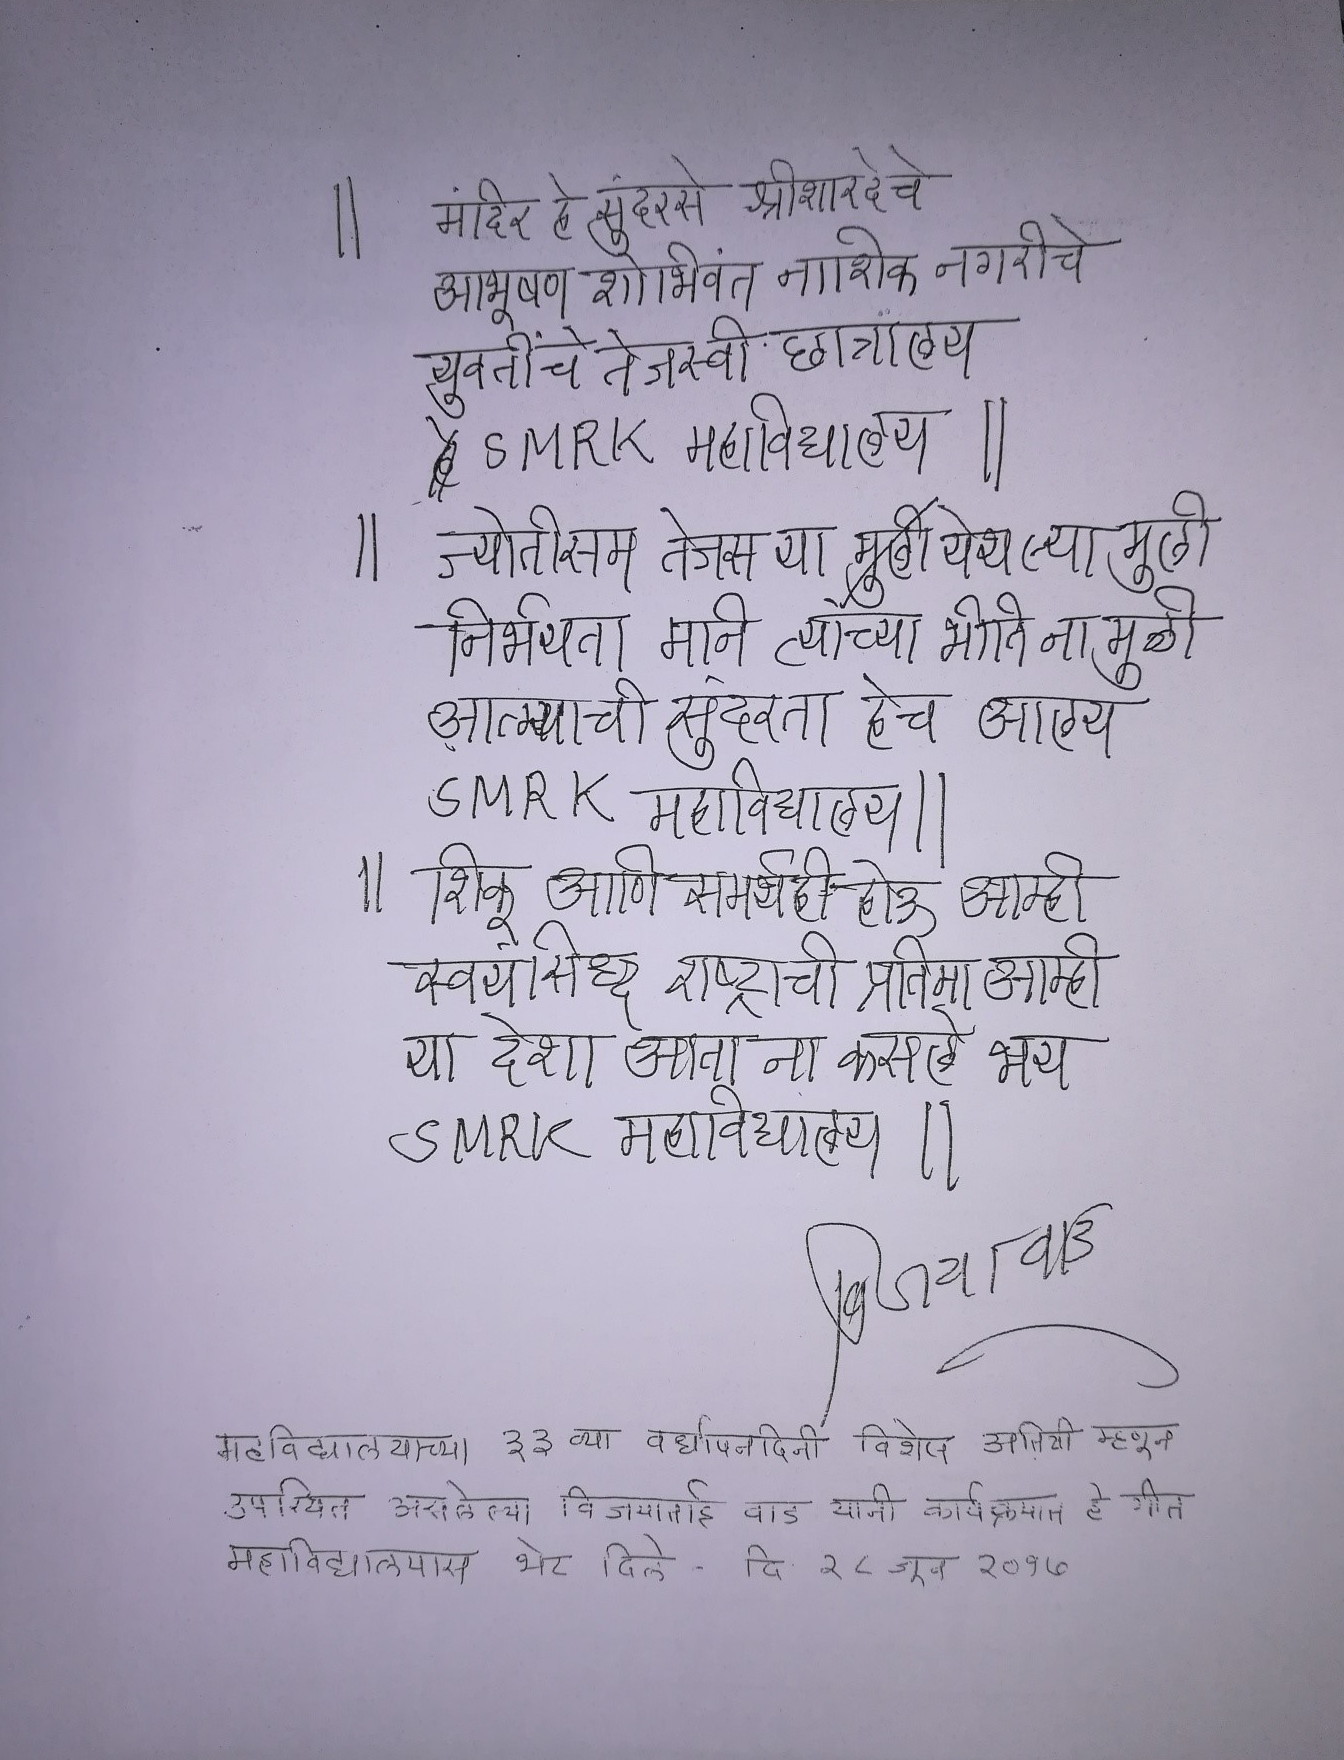 ॥ मंदिर हे सुंदरसे श्रीशारदेचे
आभूषण शोभिवंत नाशिक नगरीचे
युवतींचे तेजस्वी छात्रालय
SMRK महाविद्यालय ॥
॥ ज्योतीसम तेजस या मुली येथल्या मुली
निर्भयता मनि त्यांच्या भीति ना मुळी
आत्म्याची सुंदरता हेच आलय
SMRK महाविद्यालय ॥
॥ शिकू आणि समर्थही होऊ आम्ही
स्वयंसिध्द राष्ट्राची प्रतिमा आम्ही
या देशा आता ना कसले भय
SMRK महाविद्यालय ॥
विजया वाड
महविद्यालयाच्या ३३ व्या वर्धापनदिनी विशेष अतिथी म्हणून
उपस्थित असलेल्या विजयाताई वाड यांनी कार्यक्रमात हे गीत
महाविद्यालयास भेट दिले - दि. २८ जून २०१७